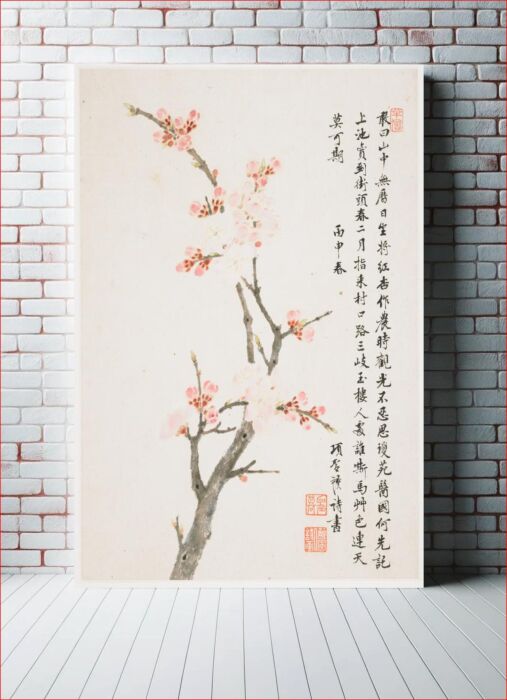 敢曰山中無曆日坐將紅杏作農時觀光不忍思瓊苑醫國何先記
上池賣到街頭春二月指來村口路三岐玉樓人處誰嘶馬艸色連天
莫可期
丙申春
項聖謨詩書